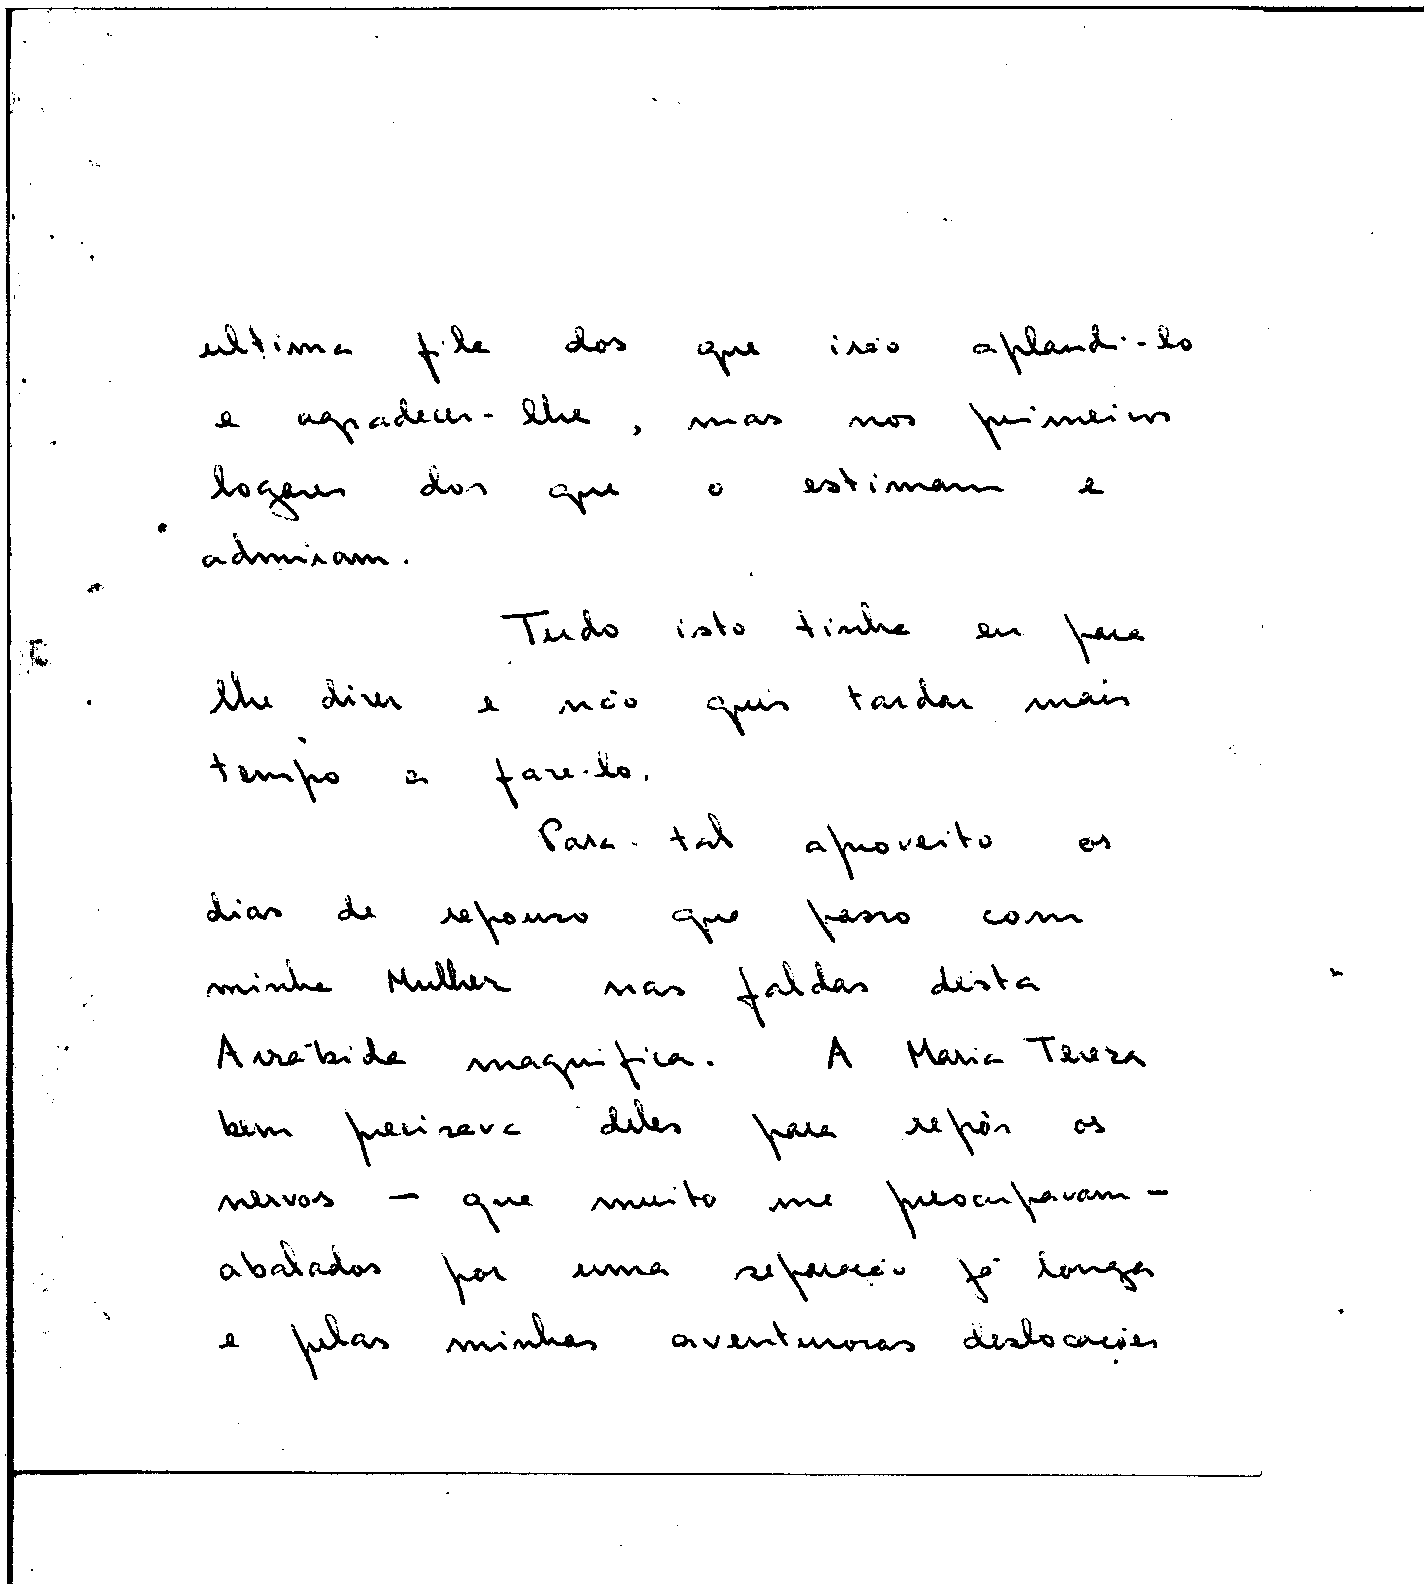 ultima fila dos que irão aplaudi-lo
e agradecer-lhe, mas nos primeiros
logares dos que o estimam e
admiram.
Tudo isto tinha eu para
lhe dizer e não quis tardar mais
tempo a faze-lo.
Para tal aproveito os
dias de repouso que passo com
minha Mulher nas faldas desta
Arrábida magnifica. A Maria Tereza
bem precisava deles para repôr os
nervos — que muito me preocupavam —
abalados por uma separação já longa
e pelas minhas aventurosas deslocações